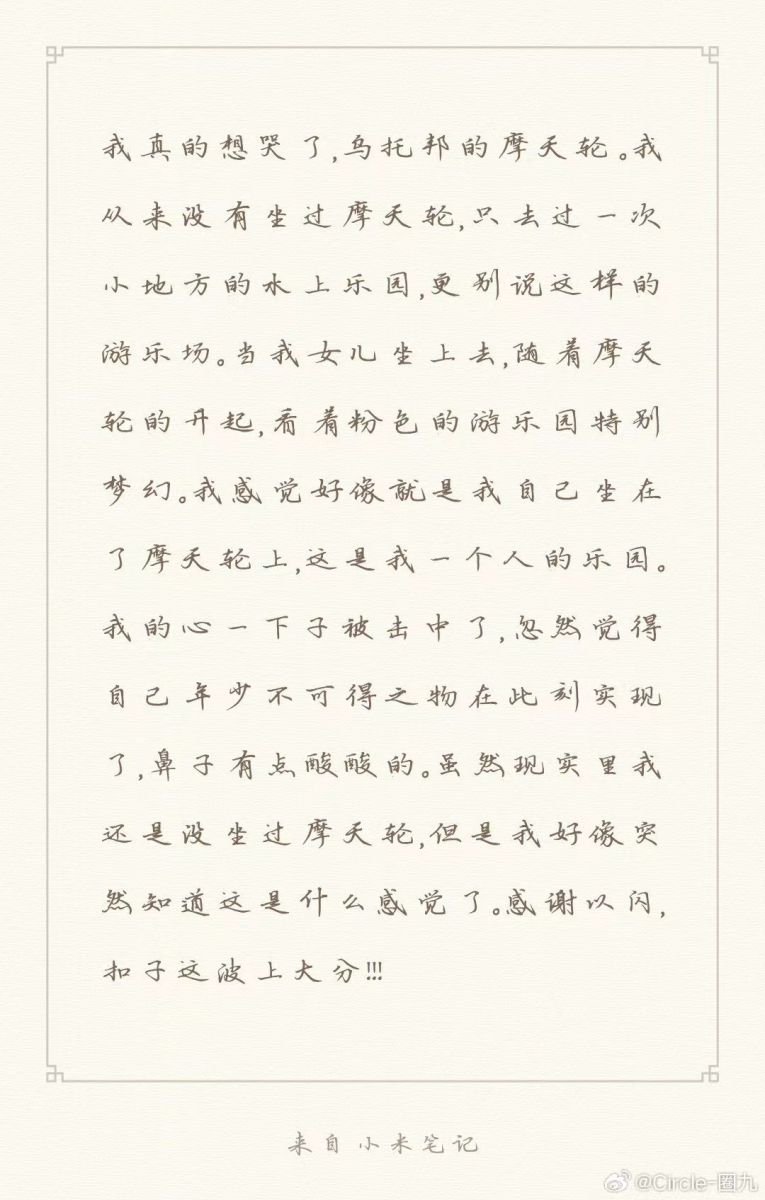 我真的想哭了,乌托邦的摩天轮。我
从来没有坐过摩天轮,只去过一次
小地方的水上乐园,更别说这样的
游乐场。当我女儿坐上去,随着摩天
轮的升起,看着粉色的游乐园特别
梦幻。我感觉好像就是我自己坐在
了摩天轮上,这是我一个人的乐园。
我的心一下子被击中了,忽然觉得
自己年少不可得之物在此刻实现
了,鼻子有点酸酸的。虽然现实里我
还是没坐过摩天轮,但是我好像突
然知道这是什么感觉了。感谢以闪,
扣子这波上大分!!!
来自小米笔记
@Circle-圈九